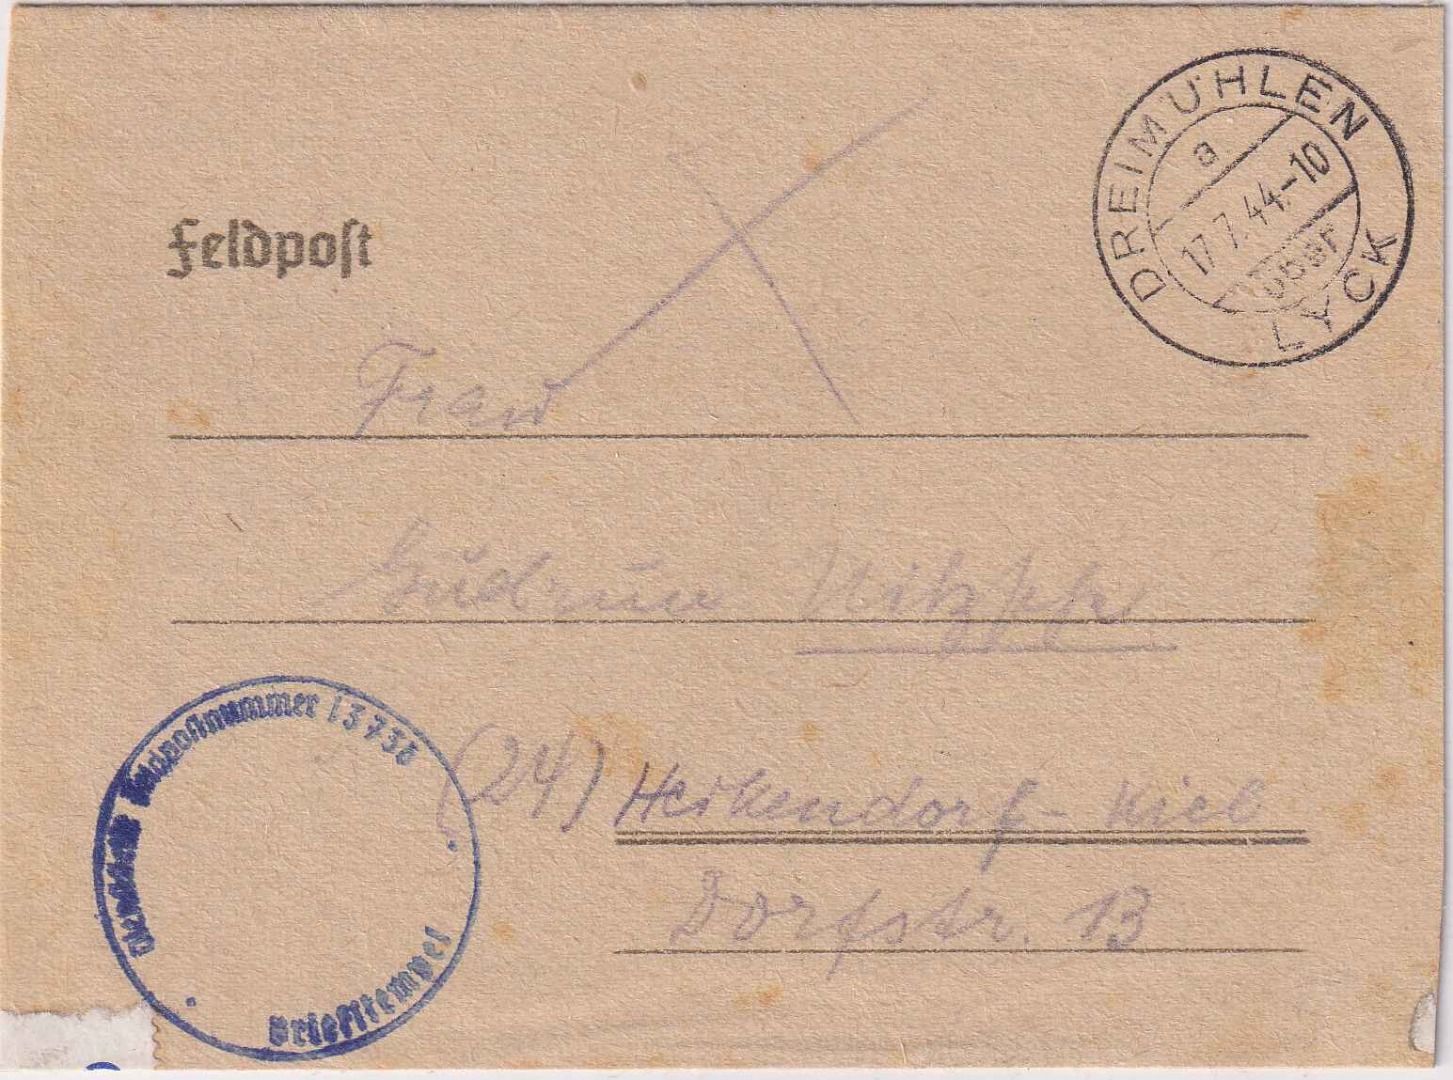 Feldpost
DREIMÜHLEN
a
17.7.44.-10
LYCK
Frau
Gudrun Nitzsche
(24) Heikendorf-Kiel
Dorfstr. 13
Feldpostnummer 13736
Briefstempel